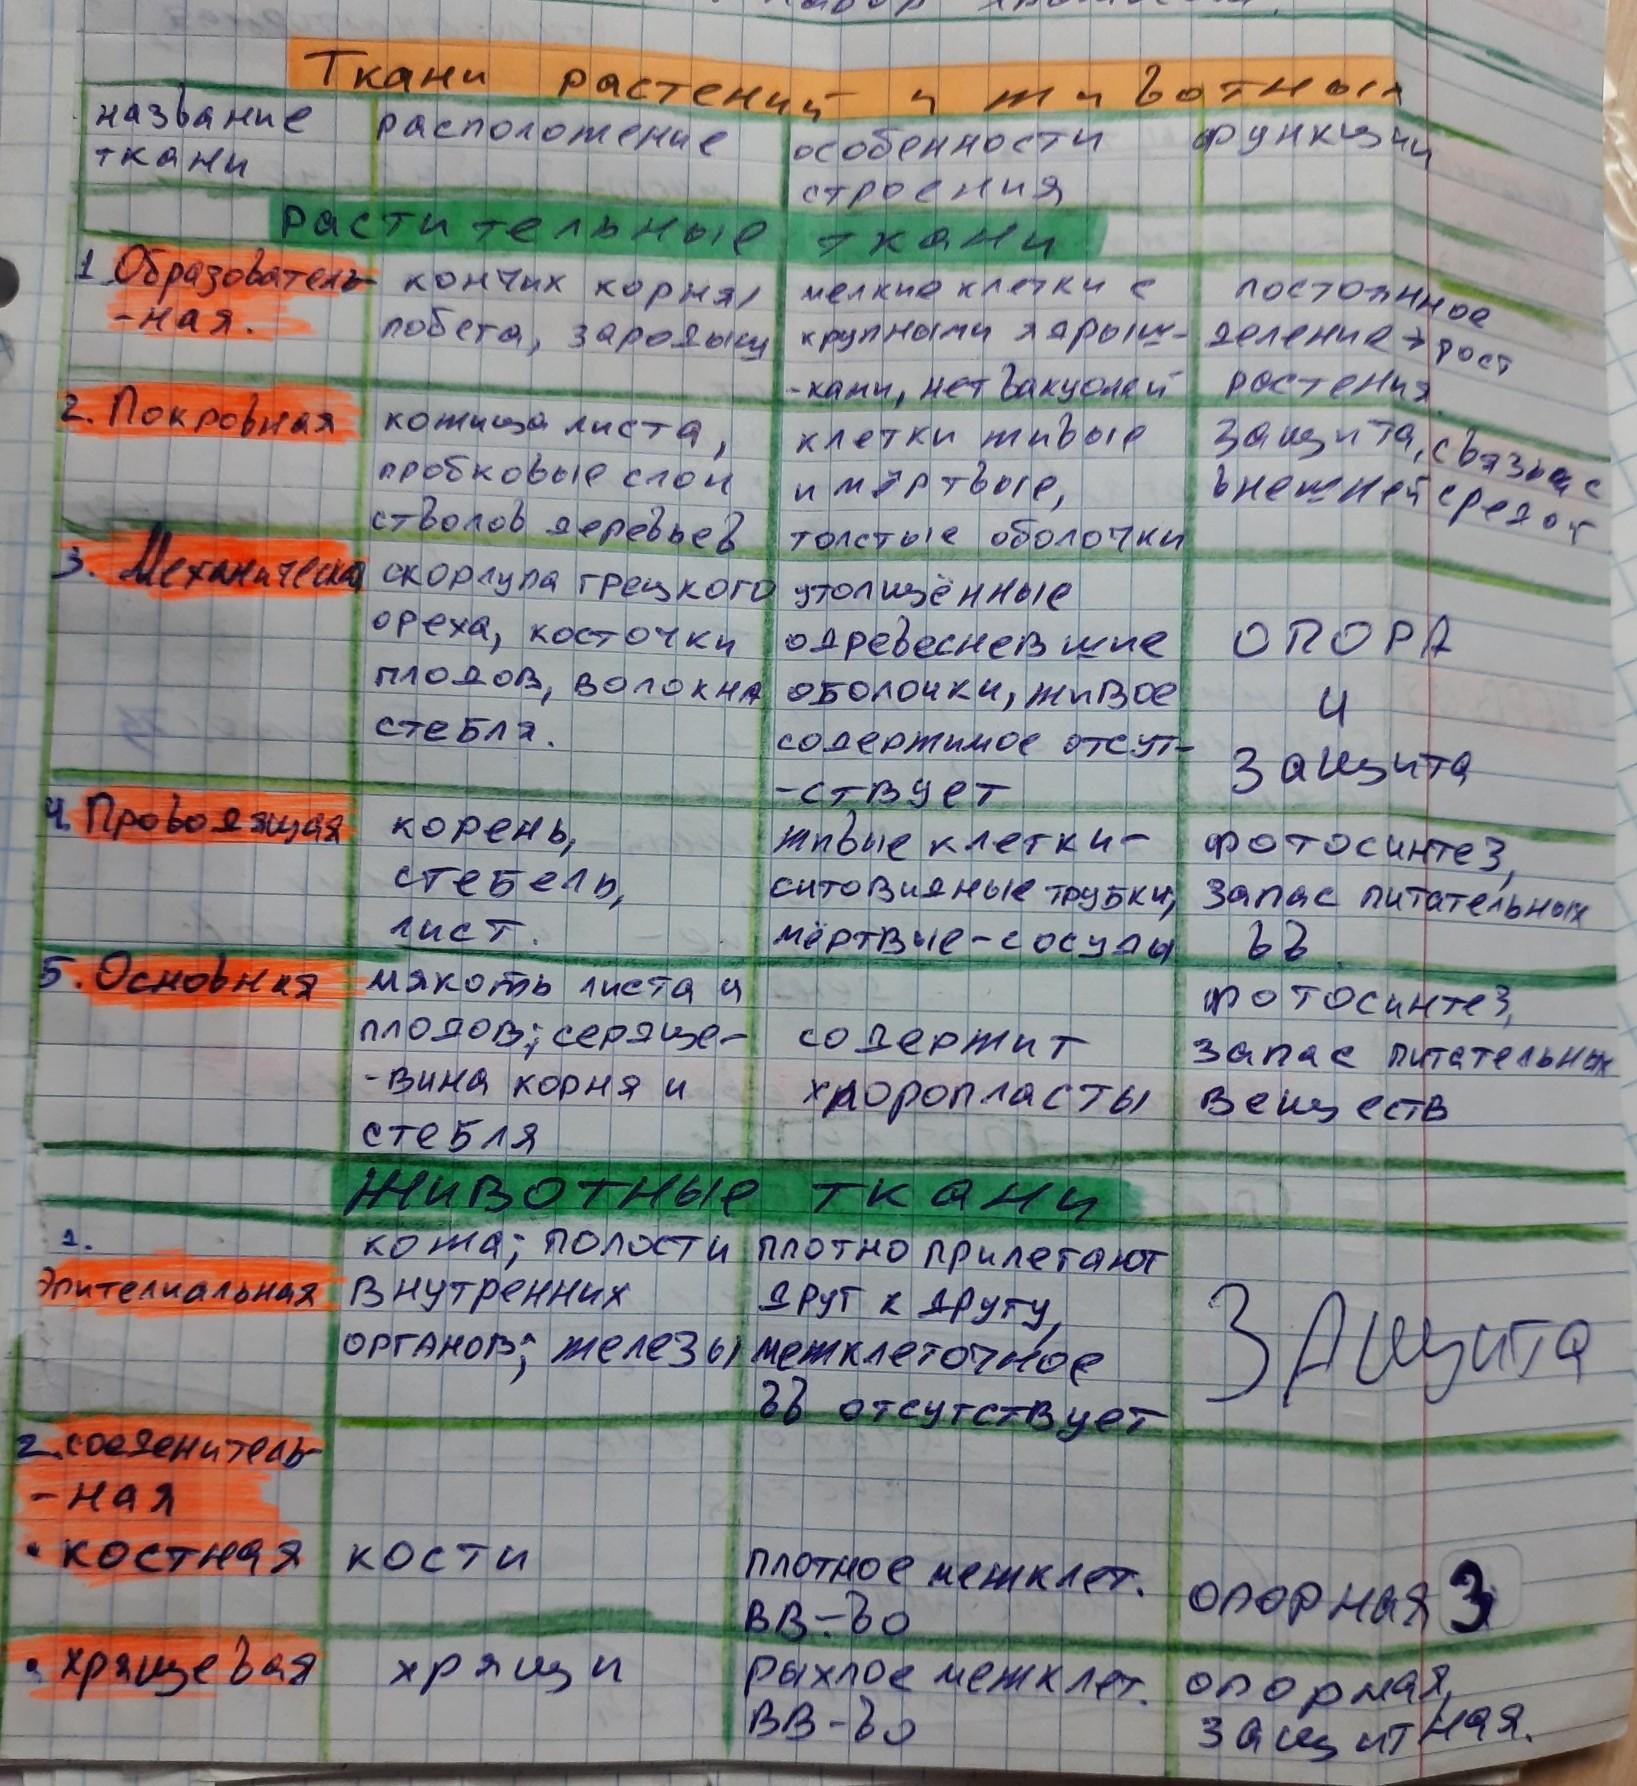 набор
Ткани растений и животных
название ткани
расположение
особенности строения
функции
растительные ткани
1. Образователь-
-ная.
кончик корня,
побега, зародыш
мелкие клетки с
крупными ядрыш-
-ками, нет вакуолей
постоянное
деление → рост
растения
2. Покровная
кожица листа,
пробковые слои
стволов деревьев
клетки живые
и мёртвые,
толстые оболочки
защита, связь с
внешней средой
3. Механическая
скорлупа грецкого
ореха, косточки
плодов, волокна
стебля.
утолщённые
одревесневшие
оболочки, живое
содержимое отсут-
-ствует
ОПОРА
и
защита
4. Проводящая
корень,
стебель,
лист.
живые клетки-
ситовидные трубки,
мёртвые-сосуды
фотосинтез,
запас питательных
вв
5. Основная
мякоть листа и
плодов; сердце-
-вина корня и
стебля
содержит
хлоропласты
фотосинтез,
запас питательных
веществ
Животные ткани
1.
Эпителиальная
кожа; полости
внутренних
органов; железы
плотно прилегают
друг к другу,
межклеточное
вв отсутствует
Защита
2. соеденитель-
-ная
• костная
кости
плотное межклет.
вв-во
опорная 3
• хрящевая
хрящи
рыхлое межклет.
вв-во
опорная,
защитная.